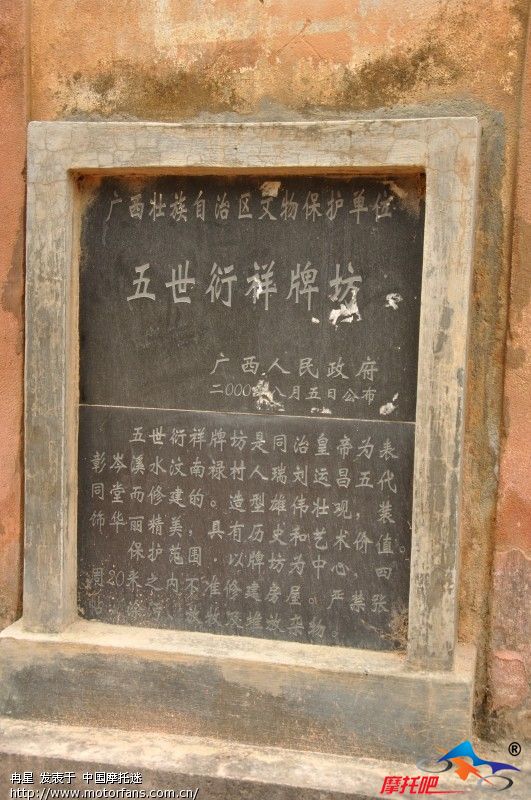 广西壮族自治区文物保护单位
五世衍祥牌坊
广西人民政府
二000年八月五日公布
五世衍祥牌坊是同治皇帝为表
彰岑溪水汶南禄村人瑞刘运昌五代
同堂而修建的。造型雄伟壮观，装
饰华丽精美，具有历史和艺术价值。
保护范围：以牌坊为中心，四
周20米之内不准修建房屋。严禁张
贴、涂污、放牧及堆放杂物。
冉星 发表于 中国摩托迷
http://www.motorfans.com.cn/
摩托吧
®